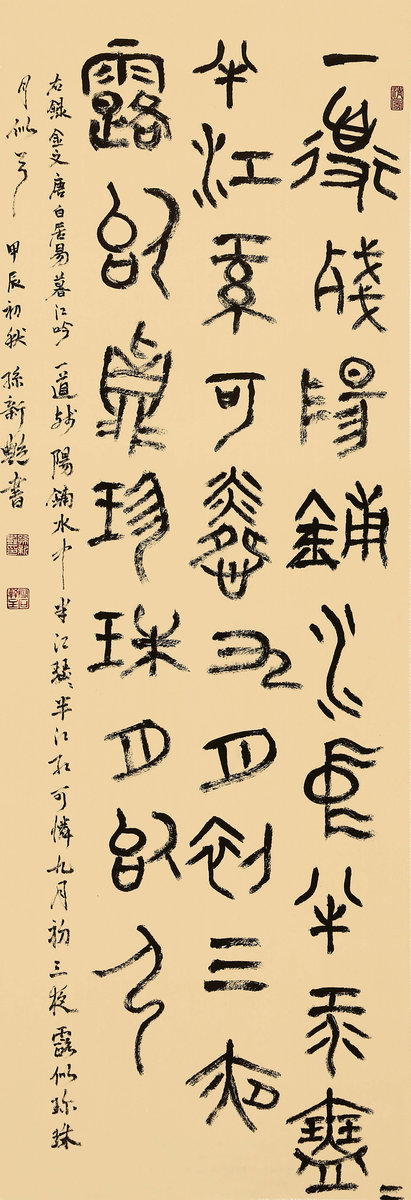 一道殘陽鋪水中半江瑟〻
半江紅可憐九月初三夜
露似真珍珠月似弓
右録金文唐白居易暮江吟一道殘陽鋪水中半江瑟〻半江紅可憐九月初三夜露似珍珠
月似弓甲辰初秋孫新艷書